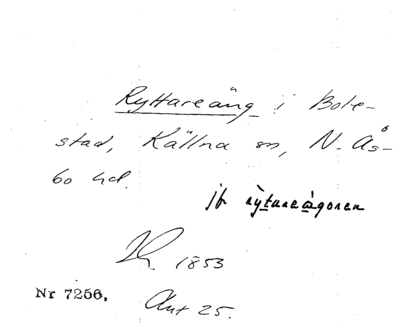 Ryttareäng i Bote-
stad, Källna sn, N. Ås-
bo hd.
jfr rỳtareàgoren
1853
Nr 7256. Ant 25.